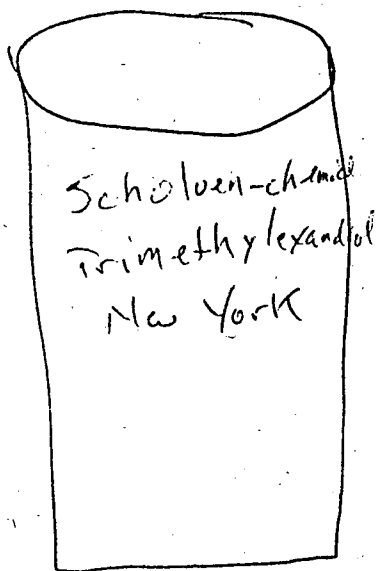 Scholven-chemie
Trimethylexandiol
New York